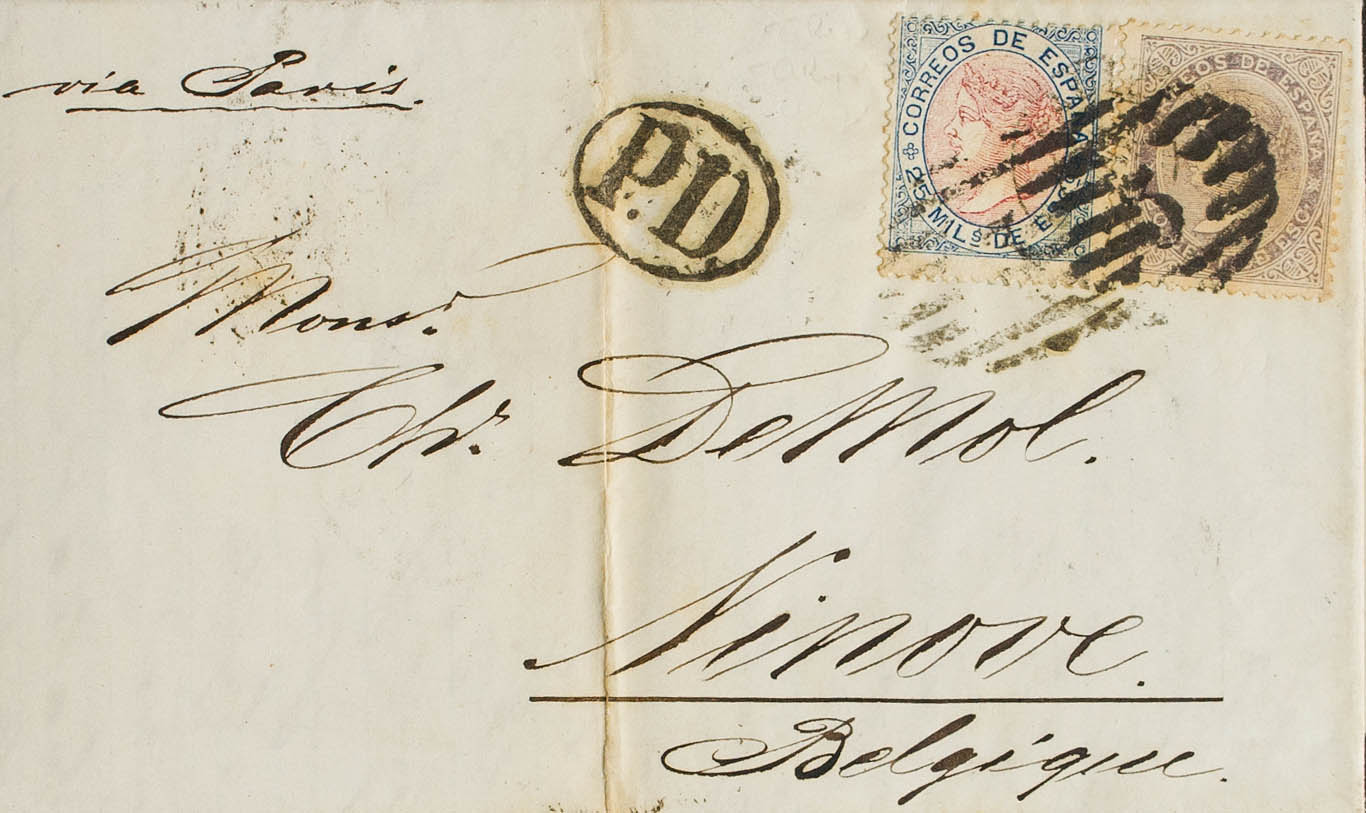 via Paris.
P.D
CORREOS DE ESPAÑA
25 MILs. DE
DE ESPAÑA
Monsr.
Chr. DeMol.
Ninove.
Belgique.